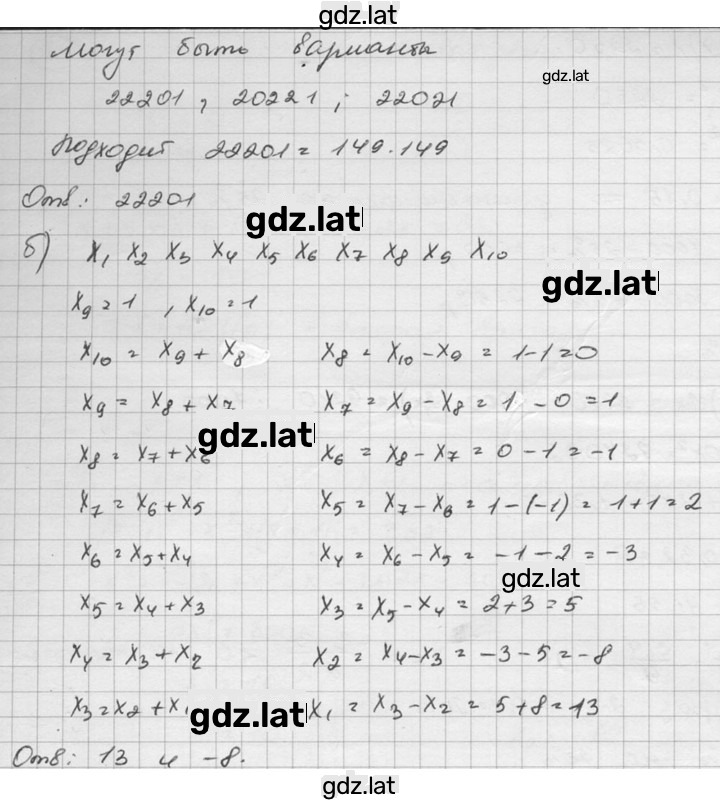 gdz.lat
могут быть варианты
gdz.lat
22201, 20221; 22021
подходит 22201 = 149·149
Отв: 22201
gdz.lat
б) x₁ x₂ x₃ x₄ x₅ x₆ x₇ x₈ x₉ x₁₀
gdz.lat
x₉ = 1, x₁₀ = 1
x₁₀ = x₉ + x₈ x₈ = x₁₀ - x₉ = 1-1=0
x₉ = x₈ + x₇ x₇ = x₉ - x₈ = 1 - 0 = 1
gdz.lat
x₈ = x₇ + x₆ x₆ = x₈ - x₇ = 0 - 1 = -1
x₇ = x₆ + x₅ x₅ = x₇ - x₆ = 1-(-1) = 1+1=2
x₆ = x₅ + x₄ x₄ = x₆ - x₅ = -1-2 = -3
gdz.lat
x₅ = x₄ + x₃ x₃ = x₅ - x₄ = 2+3=5
x₄ = x₃ + x₂ x₂ = x₄ - x₃ = -3-5=-8
x₃ = x₂ + x₁ x₁ = x₃ - x₂ = 5+8=13
gdz.lat
Отв: 13 и -8.
gdz.lat